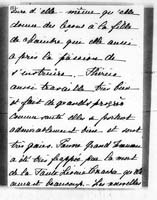 vers d'elle même qu'elle
donne des leçons à la fille
de chambre que elle aussi
a pris la passion de
s'instruire. Thérèse
aussi travaille très bien
et fait de grands progrès
comme santé elles se portent
admirablement bien et sont
très gaies. Pauvre grand'maman
a été très frappée par la mort
de la Tante Léonie qu'elle
aimait beaucoup. Les nouvelles